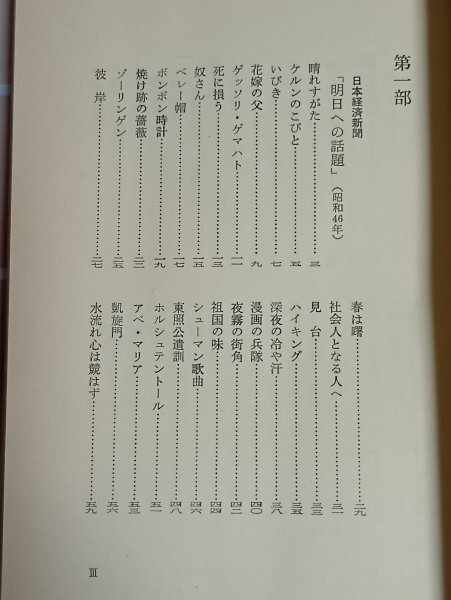 第一部
日本経済新聞
「明日への話題」(昭和46年)
晴れすがた……三
ケルンのこびと……五
いびき……七
花嫁の父……九
ゲッソリ・ゲマハト……一一
死に損う……一三
奴さん……一五
ベレー帽……一七
ボンボン時計……一九
焼け跡の薔薇……二三
ゾーリンゲン……二五
彼岸……二七
春は曙……二九
社会人となる人へ……三一
見台……三三
ハイキング……三五
深夜の冷や汗……三八
漫画の兵隊……四〇
夜霧の街角……四二
祖国の味……四四
シューマン歌曲……四六
東照公遺訓……四八
ホルシュテントール……五一
アベ・マリア……五三
凱旋門……五六
水流れ心は競はず……五九
III